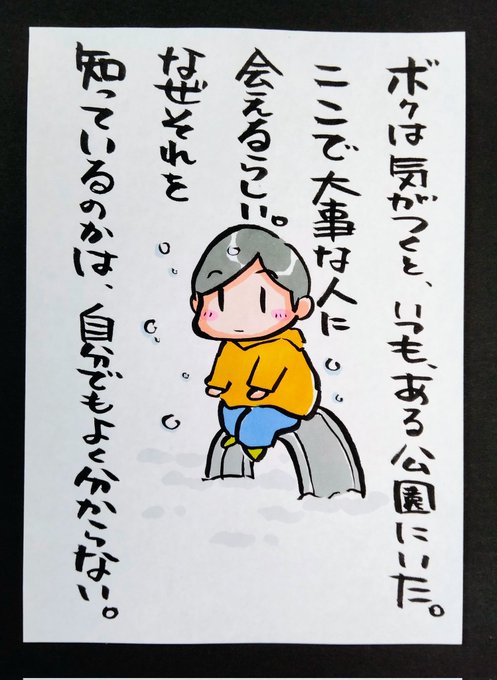 ボクは気がつくと、いつも、ある公園にいた。
ここで大事な人に
会えるらしい。
なぜそれを
知っているのかは、自分でもよく分からない。